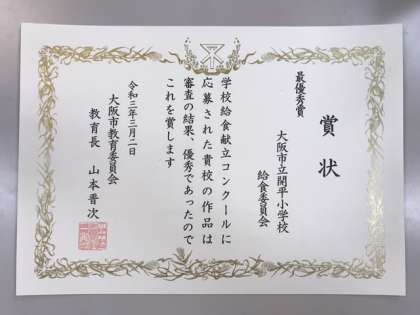 賞状
最優秀賞
大阪市立開平小学校
給食委員会
学校給食献立コンクールに
応募された貴校の作品は
審査の結果、優秀であったので
これを賞します
令和三年三月二日
大阪市教育委員会
教育長 山本晋次